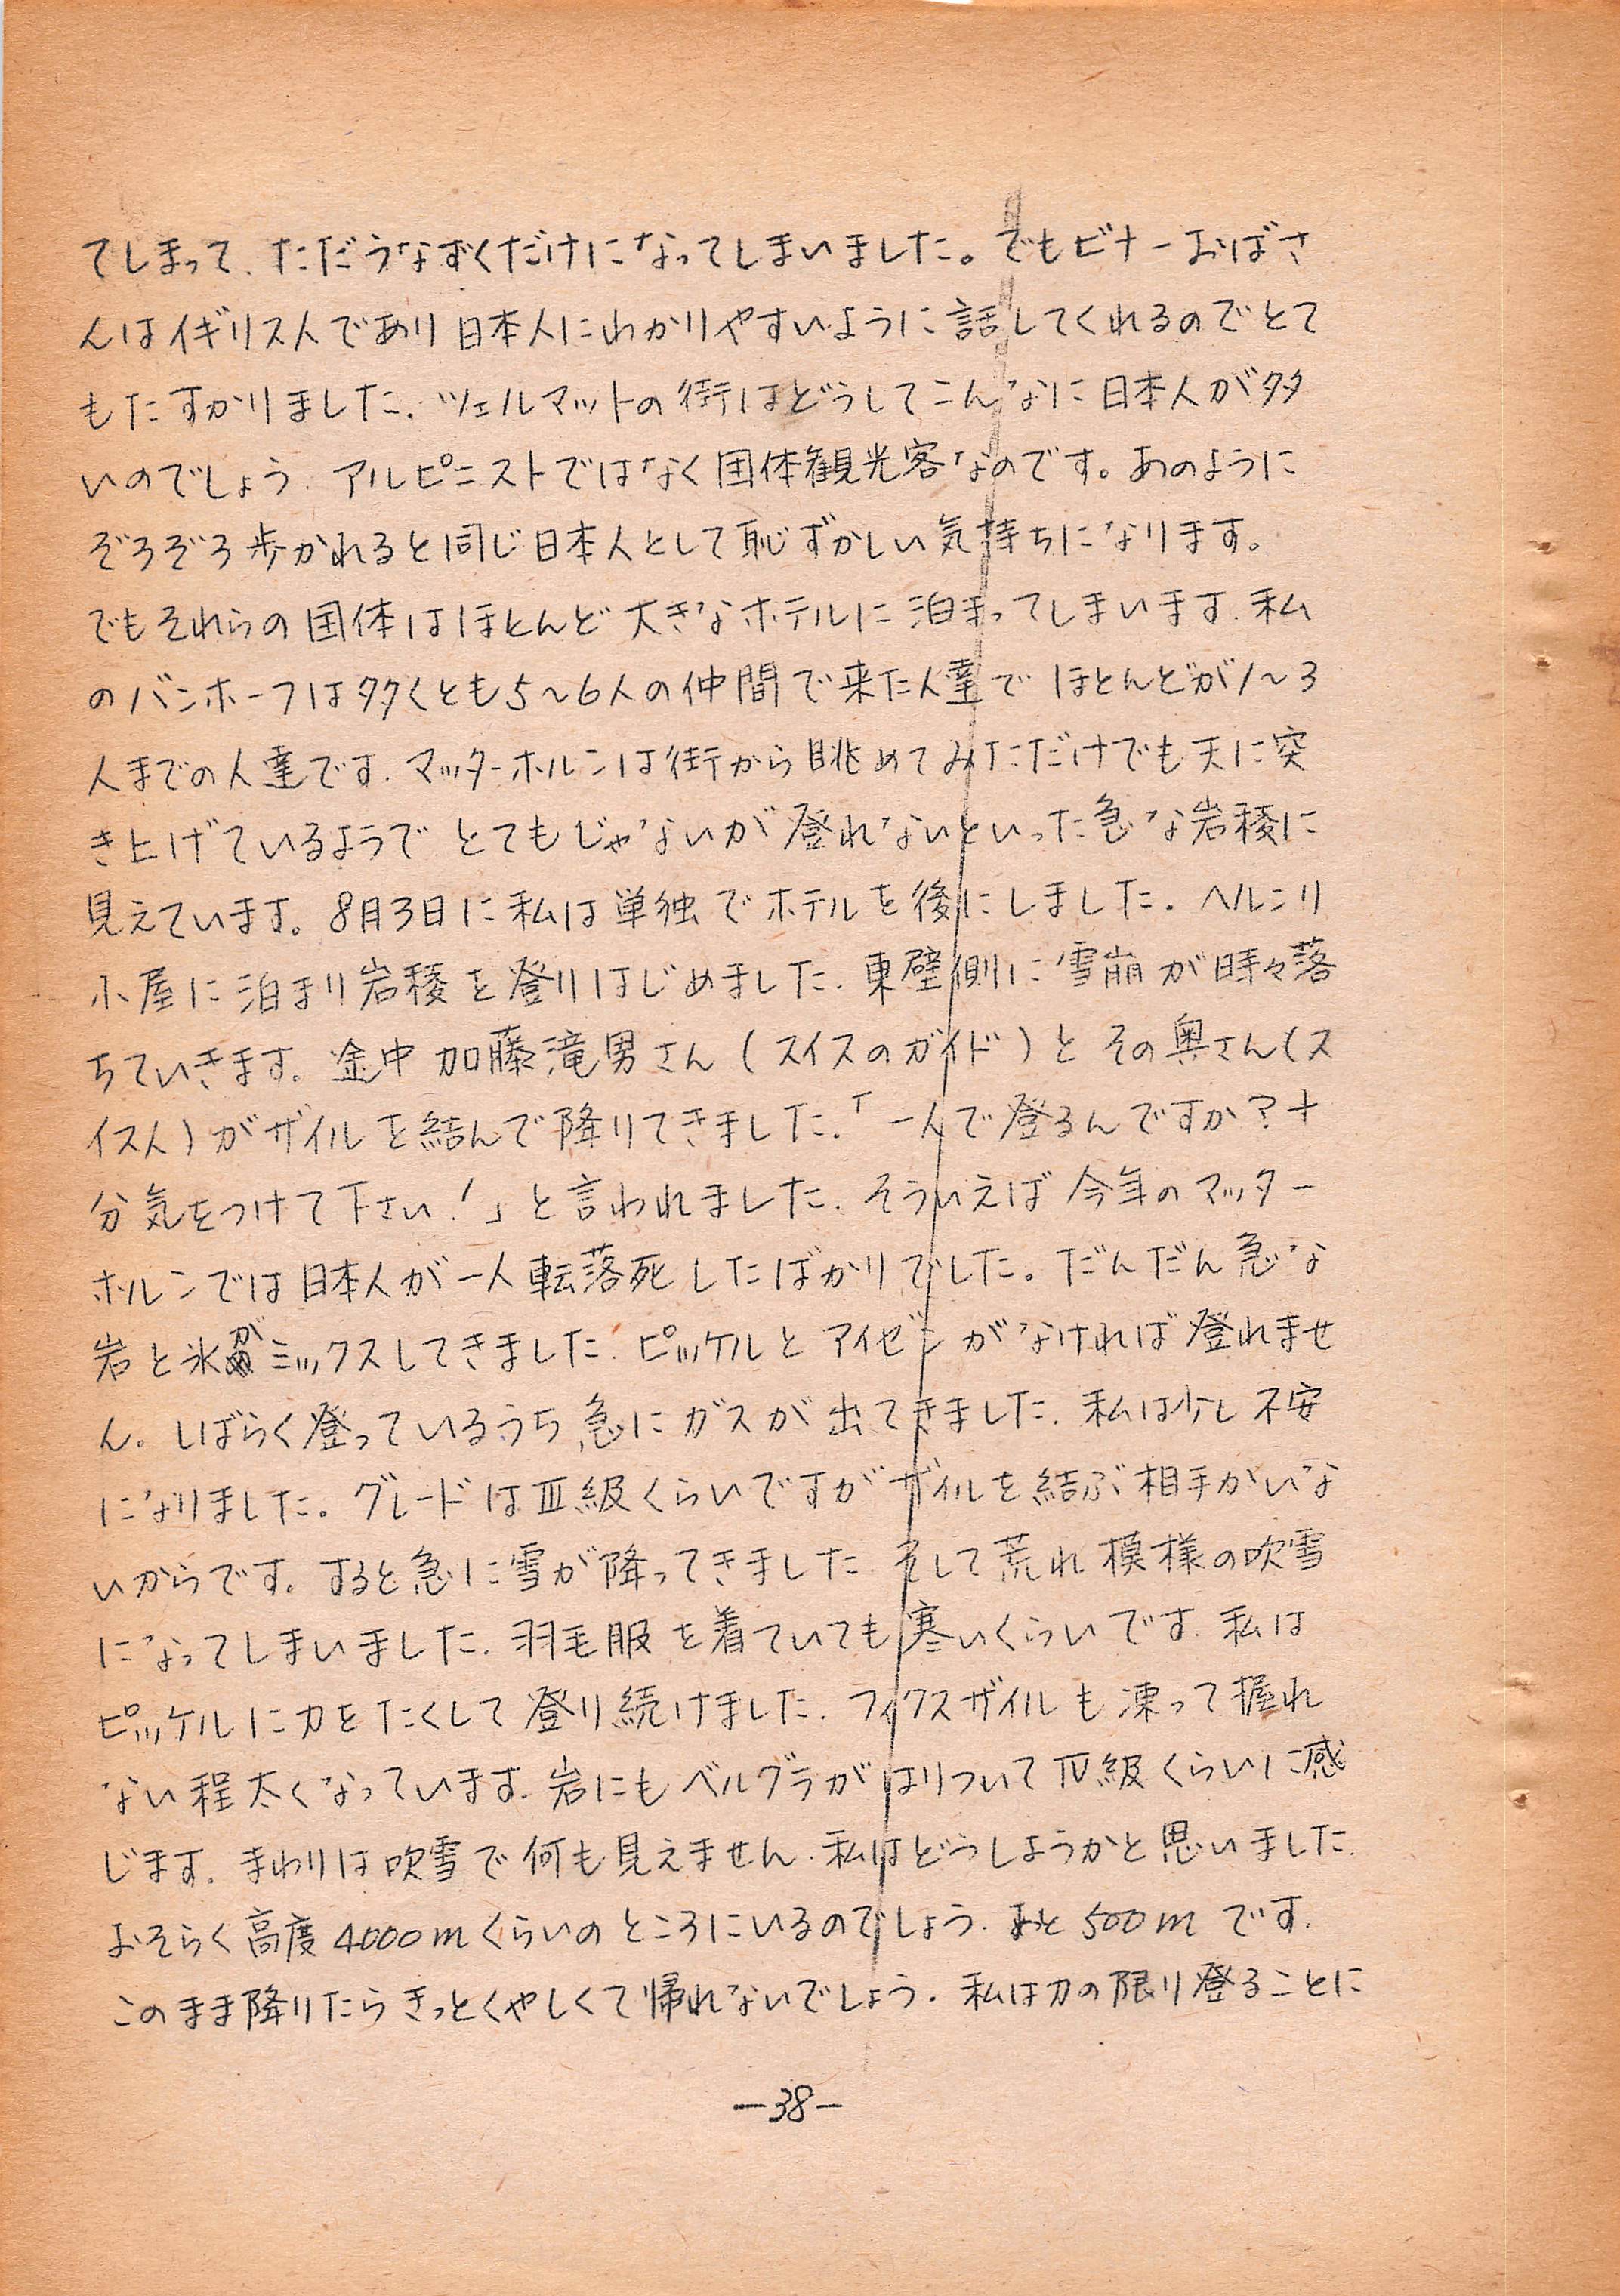 てしまって、ただうなずくだけになってしまいました。でもビナーおばさ
んはイギリス人であり日本人にわかりやすいように話してくれるのでとて
もたすかりました。ツェルマットの街はどうしてこんなに日本人が多
いのでしょう。アルピニストではなく団体観光客なのです。あのように
ぞろぞろ歩かれると同じ日本人として恥ずかしい気持ちになります。
でもそれらの団体はほとんど大きなホテルに泊まってしまいます。私
のバンホーフは多くとも5~6人の仲間で来た人達でほとんどが1~3
人までの人達です。マッターホルンは街から眺めてみただけでも天に突
き上げているようでとてもじゃないが登れないといった急な岩稜に
見えています。8月3日に私は単独でホテルを後にしました。ヘルンリ
小屋に泊まり岩稜を登りはじめました。東壁側に雪崩が時々落
ちていきます。途中加藤滝男さん(スイスのガイド)とその奥さん(ス
イス人)がザイルを結んで降りてきました。「一人で登るんですか?十
分気をつけて下さい!」と言われました。そういえば今年のマッター
ホルンでは日本人が一人転落死したばかりでした。だんだん急な
岩と氷がミックスしてきました。ピッケルとアイゼンがなければ登れませ
ん。しばらく登っているうち急にガスが出てきました。私は少し不安
になりました。グレードはⅢ級くらいですがザイルを結ぶ相手がいな
いからです。すると急に雪が降ってきました。そして荒れ模様の吹雪
になってしまいました。羽毛服を着ていても寒いくらいです。私は
ピッケルに力をたくして登り続けました。フィクスザイルも凍って握れ
ない程太くなっています。岩にもベルグラがはりついてⅣ級くらいに感
じます。まわりは吹雪で何も見えません。私はどうしようかと思いました。
おそらく高度4000mくらいのところにいるのでしょう。あと500mです。
このまま降りたらきっとくやしくて帰れないでしょう。私は力の限り登ることに
—38—